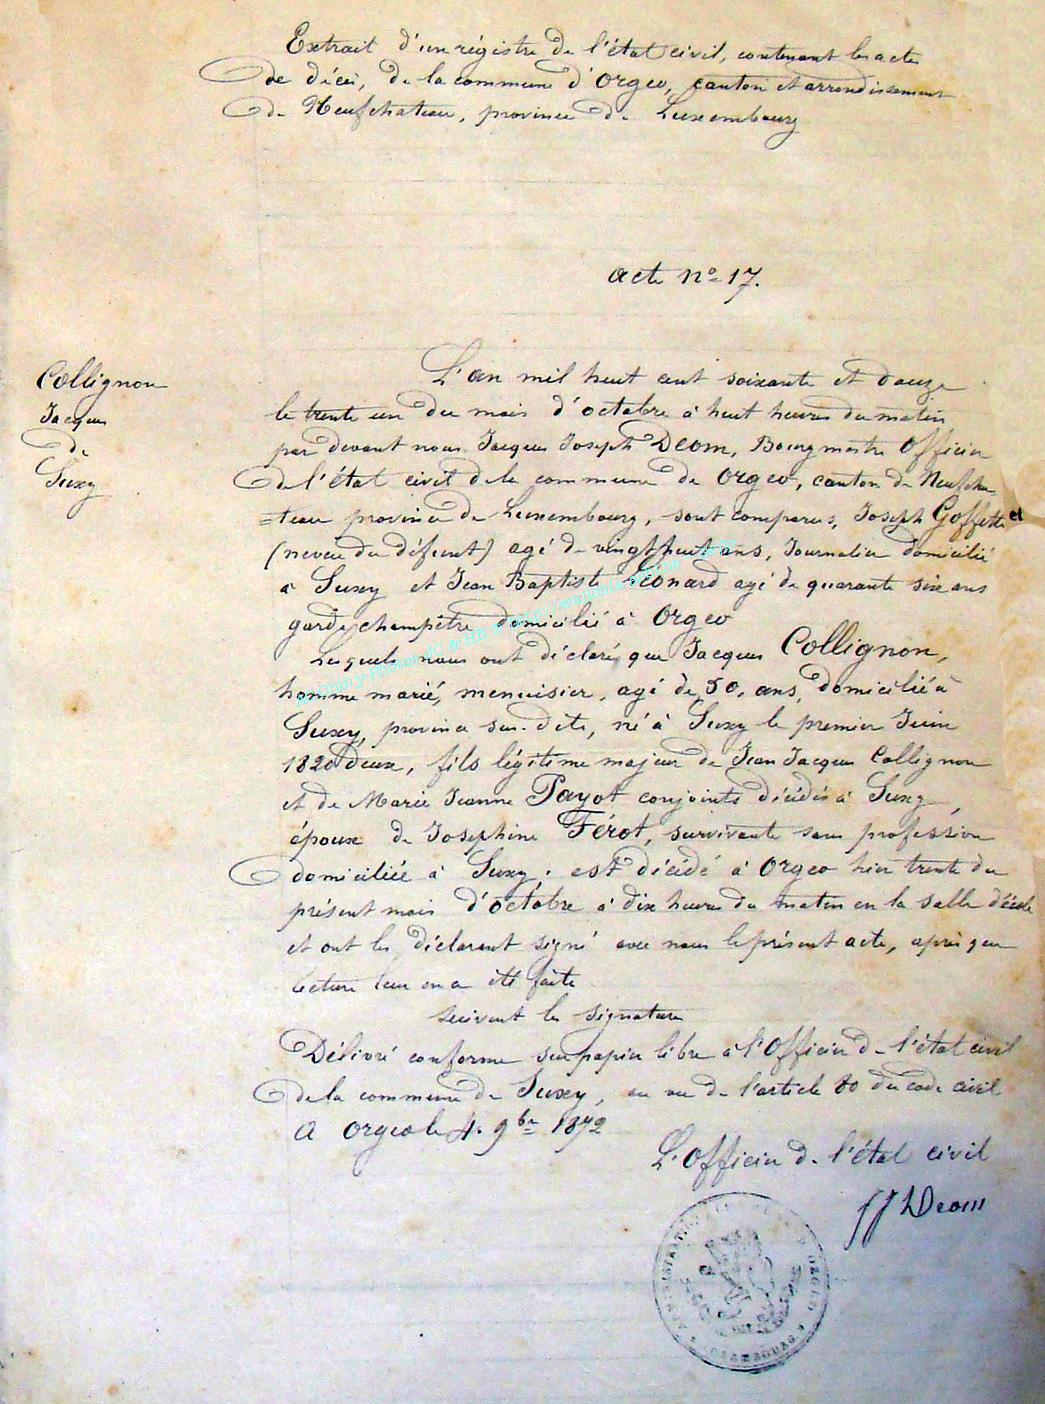 Extrait d'un régistre de l'état civil, contenant les actes
de décès, de la commune d'Orgeo, canton et arrondissement
de Neufchateau, province de Luxembourg
acte nº 17.
Collignon
Jacques
de
Suxy
L'an mil huit cent soixante et douze
le trente un du mois d'octobre à huit heures du matin
par devant nous Jacques Joseph Deom, Bourgmestre Officier
de l'état civil de la commune de Orgeo, canton de Neufcha-
=teau province de Luxembourg, sont comparus, Joseph Goffette et
(neveu du défunt) agé de vingt huit ans, Journalier domicilié
à Suxy et Jean Baptiste Léonard agé de quarante six ans
garde champêtre domicilié à Orgeo
Lesquels nous ont déclaré que Jacques Collignon,
homme marié, menuisier, agé de 50, ans, domicilié à
Suxy, province sus-dite, né à Suxy le premier Juin
1820 deux, fils légitime majeur de Jean Jacques Collignon
et de Marie Jeanne Payot conjoints décédés à Suxy,
époux de Joséphine Férot, survivante sans profession
domiciliée à Suxy. est décédé à Orgeo hier trente du
présent mois d'octobre à dix heures du matin en la salle d'école
et ont les déclarant signé avec nous le présent acte, après que
lecture leur en a été faite
suivent les signatures
Délivré conforme sur papier libre à l'Officier de l'état civil
de la commune de Suxy, en vu de l'article 80 du code civil
A Orgeo le 4. 9bre 1872
L'Officier de l'état civil
JJ Deom
LUXEMBOURG